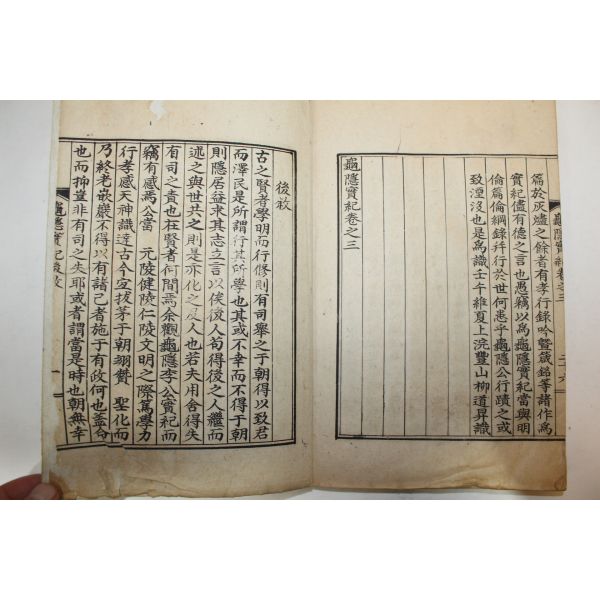 篇於灰燼之餘者有孝行錄吟暨箴銘等諸作爲
實紀儘有德之言也愚竊以爲龜隱實紀當與明
倫篇倫綱錄幷行於世何患乎龜隱公行蹟之或
致湮沒也是爲識壬午維夏上浣豐山柳道昇識
龜隱實紀卷之三
後敍
古之賢者學明而行修則有司擧之于朝得以致君
而澤民是所謂行其所學也其或不幸而不得于朝
則隱居益求其志立言以俟後人苟得後之人繼而
述之與世共之則是亦化之及人也若夫用舍得失
有司之責也在賢者何間焉余觀龜隱李公實紀而
竊有感焉公當 元陵健陵仁陵文明之際篤學力
行孝感天神識達古今宜拔茅于朝翊贊 聖化而
乃終老嵌巖不得以有諸己者施于有政何也盖命
也而抑豈非有司之失耶或者謂當是時也朝無幸